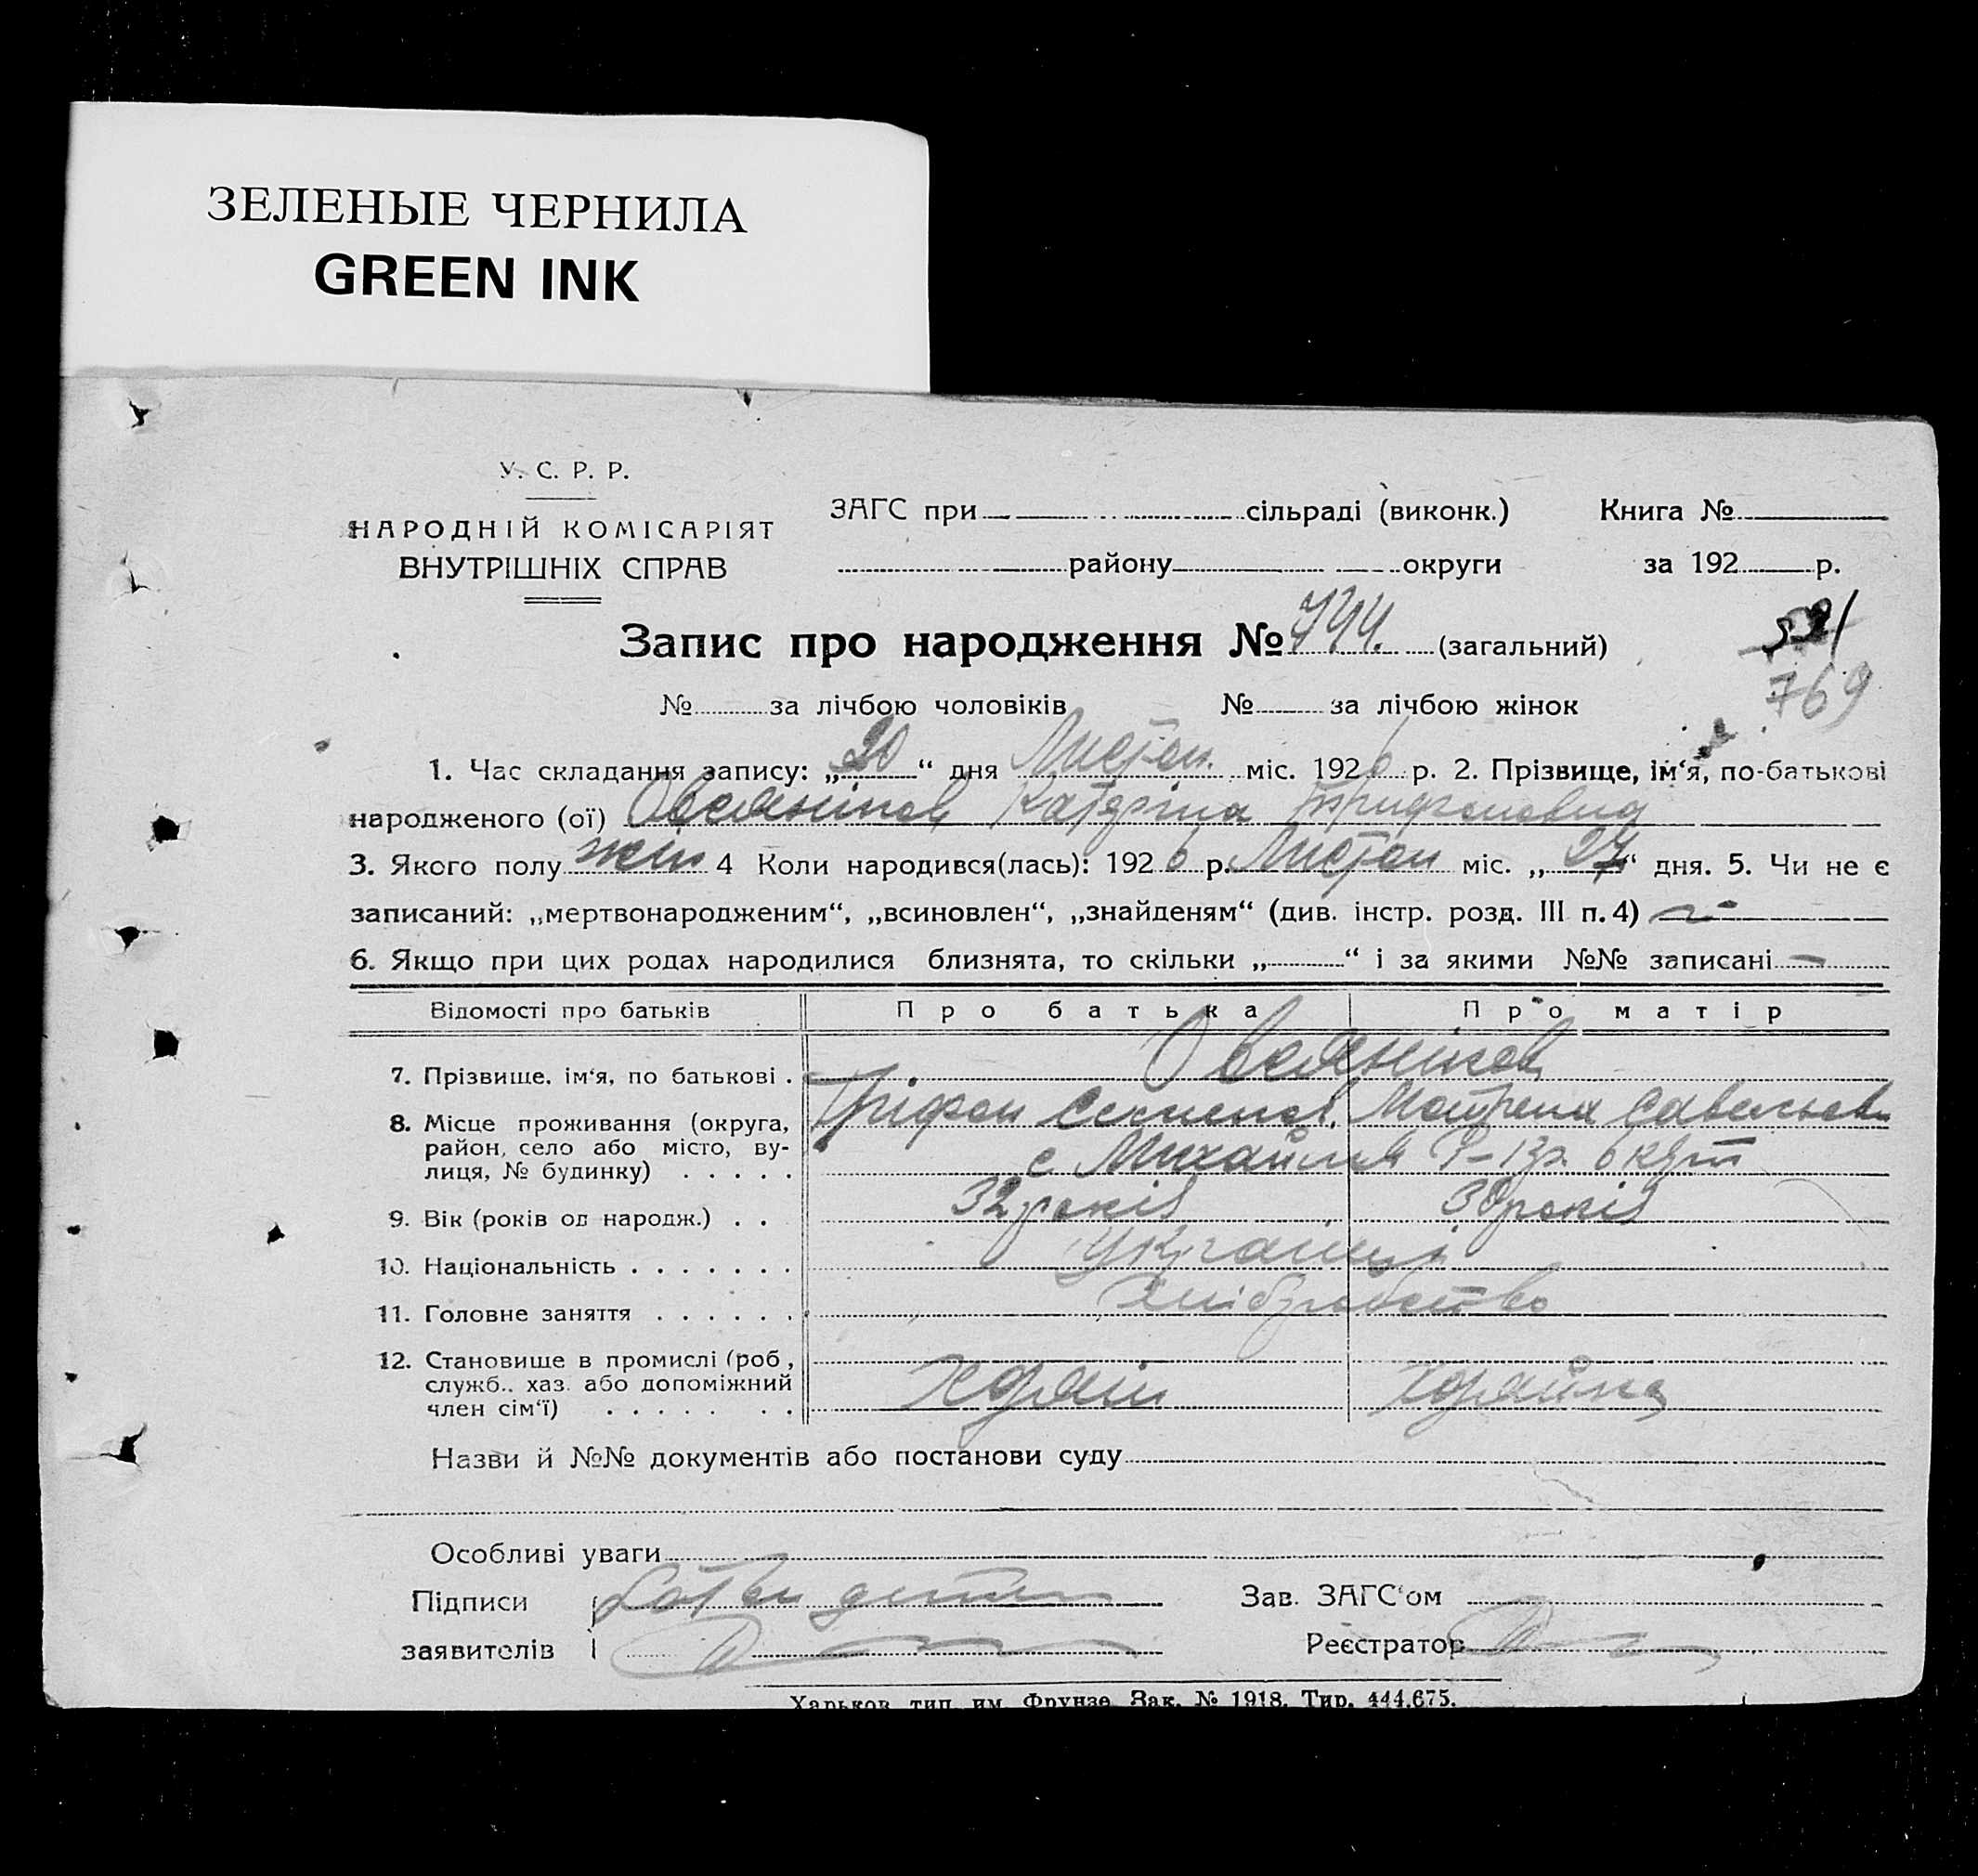 ЗЕЛЕНЫЕ ЧЕРНИЛА
GREEN INK
У. С. Р. Р.
НАРОДНІЙ КОМІСАРІЯТ
ВНУТРІШНІХ СПРАВ
ЗАГС при сільраді (виконк.) Книга №
району округи за 192 р.
Запис про народження № 744. (загальний)
769
№ за лічбою чоловіків № за лічбою жінок
1. Час складання запису: „30“ дня Листоп. міс. 1926 р. 2. Прізвище, ім‘я, по-батькові
народженого (ої) Катеріна Трифоновна
3. Якого полу жін 4 Коли народився(лась): 1926 р. Листоп міс. „27“ дня. 5. Чи не є
записаний: „мертвонародженим“, „всиновлен“, „знайденям“ (див. інстр. розд. III п. 4)
6. Якщо при цих родах народилися близнята, то скільки „—“ і за якими №№ записані —
Відомості про батьків Про батька Про матір
7. Прізвище, ім‘я, по батькові .
Тріфон Мотрена Савельев
8. Місце проживання (округа,
район, село або місто, ву-
лиця, № будинку) . . . . .
с. Михайлів
9. Вік (років од народж.) . . 32 років 30 років
10. Національність . . . . . . . Украінці
11. Головне заняття . . . . . . Хлібробство
12. Становище в промислі (роб.,
служб., хаз. або допоміжний
член сім‘ї) . . . . . . . хозяїн хозяйка
Назви й №№ документів або постанови суду
Особливі уваги
Підписи Зав. ЗАГС‘ом
заявителів Реєстратор
Харьков, тип. им. Фрунзе. Зак. № 1918. Тир. 444.675.